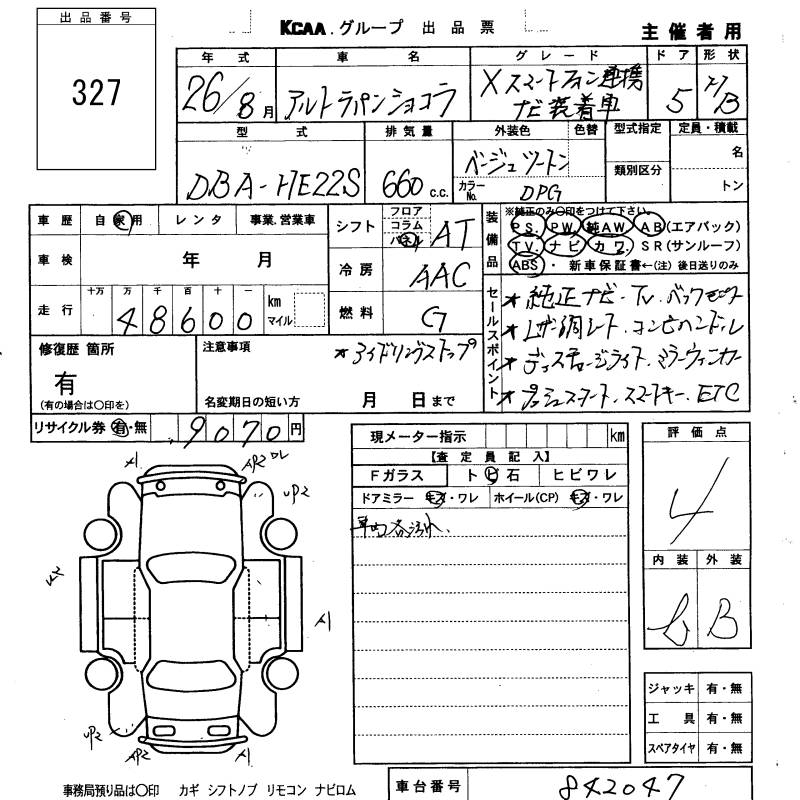 出品番号
327
KCAA.グループ 出品票
主催者用
年式 車名 グレード ドア 形状
26/8月 アルトラパンショコラ Xスマートフォン連携 5 H/B
ナビ装着車
型式 排気量 外装色 色替 型式指定 定員・積載
DBA-HE22S 660 c.c. ベージュツートン 名
カラーNo. DPG 類別区分 トン
車歴 自家用 レンタ 事業.営業車
車検 年 月
走行 十万 万 千 百 十 一
48600 km マイル
シフト フロア コラム パネル AT
冷房 AAC
燃料 G
装備品 ※純正のみ〇印をつけて下さい。
PS. PW. 純AW. AB(エアバック)
TV. ナビ カワ. SR(サンルーフ)
ABS. ・新車保証書←(注)後日送りのみ
セールスポイント
★純正ナビ・TV.バックモニター
★レザー調シート.コンビハンドル
★ディスチャージライト.ミラーウィンカー
★プッシュスタート.スマートキー.ETC
修復歴 箇所
有
(有の場合は〇印を)
注意事項 ★アイドリングストップ
名変期日の短い方 月 日まで
リサイクル券 有・無 9070円
現メーター指示 km
【査定員記入】
Fガラス トビ石 ヒビワレ
ドアミラー キズ・ワレ ホイール(CP) キズ・ワレ
車内各汚れ.
評価点
4
内装 外装
b B
A1 AP2 DL
UP2
A1
UP2
AP2 A1
ジャッキ 有・無
工具 有・無
スペアタイヤ 有・無
事務局預り品は〇印 カギ シフトノブ リモコン ナビロム
車台番号 842047